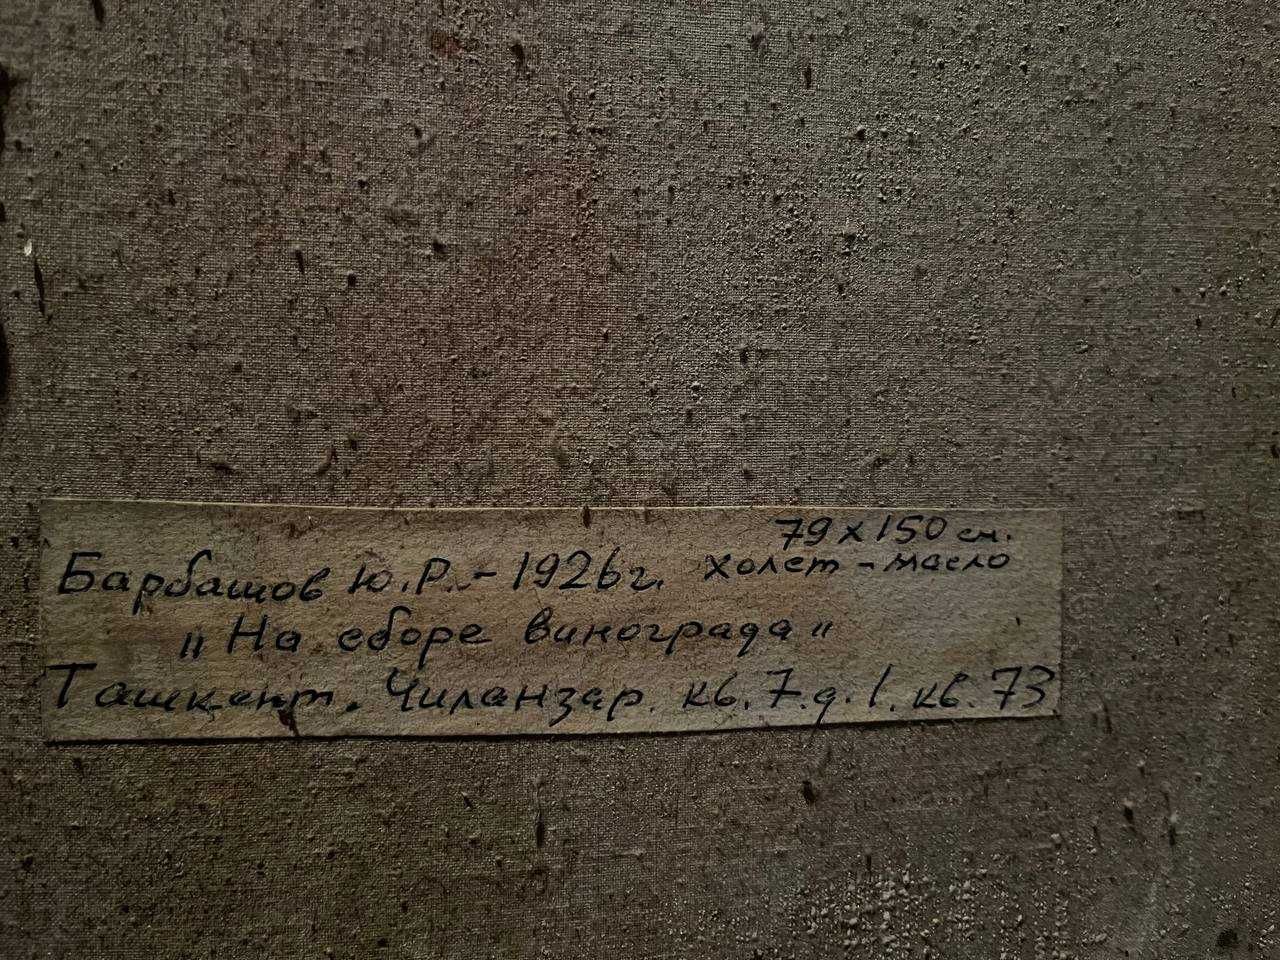 79 х 150 см.
Барбашов Ю.Р. - 1926 г. холст - масло
„ На сборе винограда "
Ташкент. Чиланзар. кв. 7. д. 1. кв. 73